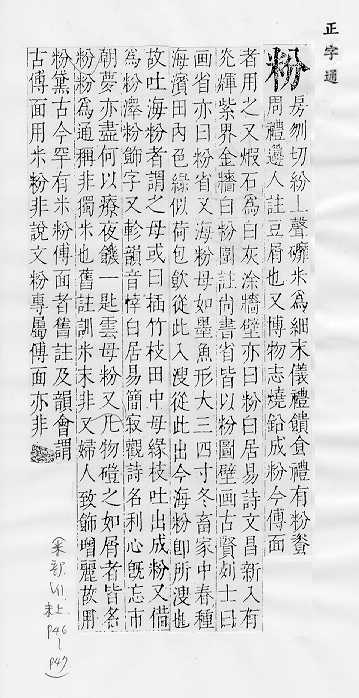 正字通
粉
房刎切紛上聲礳米為細末儀禮饋食禮有粉餈
周禮籩人註豆屑也又博物志燒鉛成粉今傅面
者用之又煆石為白灰涂牆壁亦曰粉白居易詩文昌新入有
光輝紫界金牆白粉圍註尚書省皆以粉圖壁画古賢列士曰
画省亦曰粉省又海粉母如墨魚形大三四寸冬畜家中春種
海濱田內色緑似荷包歛從此入溲從此出今海粉卽所溲也
故吐海粉者謂之母或曰插竹枝田中母緣枝吐出成粉又借
為粉澤粉飾字又軫韻音
白居易簡寂觀詩名利心旣忘市
朝夢亦盡何以療夜饑一匙雲母粉又凡物磑之如屑者皆名
粉粉為通稱非獨米也舊註訓米末非又婦人致飾增麗故用
粉黛古今罕有米粉傅面者舊註及韻會謂
古傅面用米粉非說文粉專屬傅面亦非
(米部 未上 P46-P47)